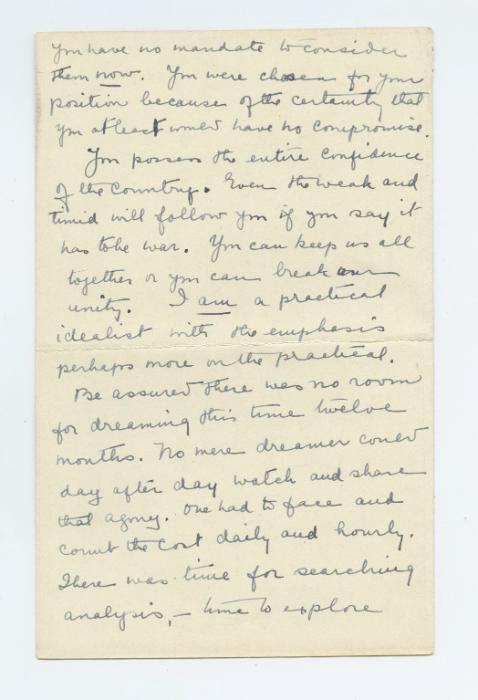 You have no mandate to consider
them now. You were chosen for your
position because of the certainty that
you at least would have no compromise.
You possess the entire confidence
of the country. Even the weak and
timid will follow you if you say it
has to be war. You can keep us all
together or you can break our
unity. I am a practical
idealist with the emphasis
perhaps more on the practical.
Be assured there was no room
for dreaming this time twelve
months. No mere dreamer could
day after day watch and share
that agony. One had to face and
count the cost daily and hourly.
There was time for searching
analysis, – time to explore